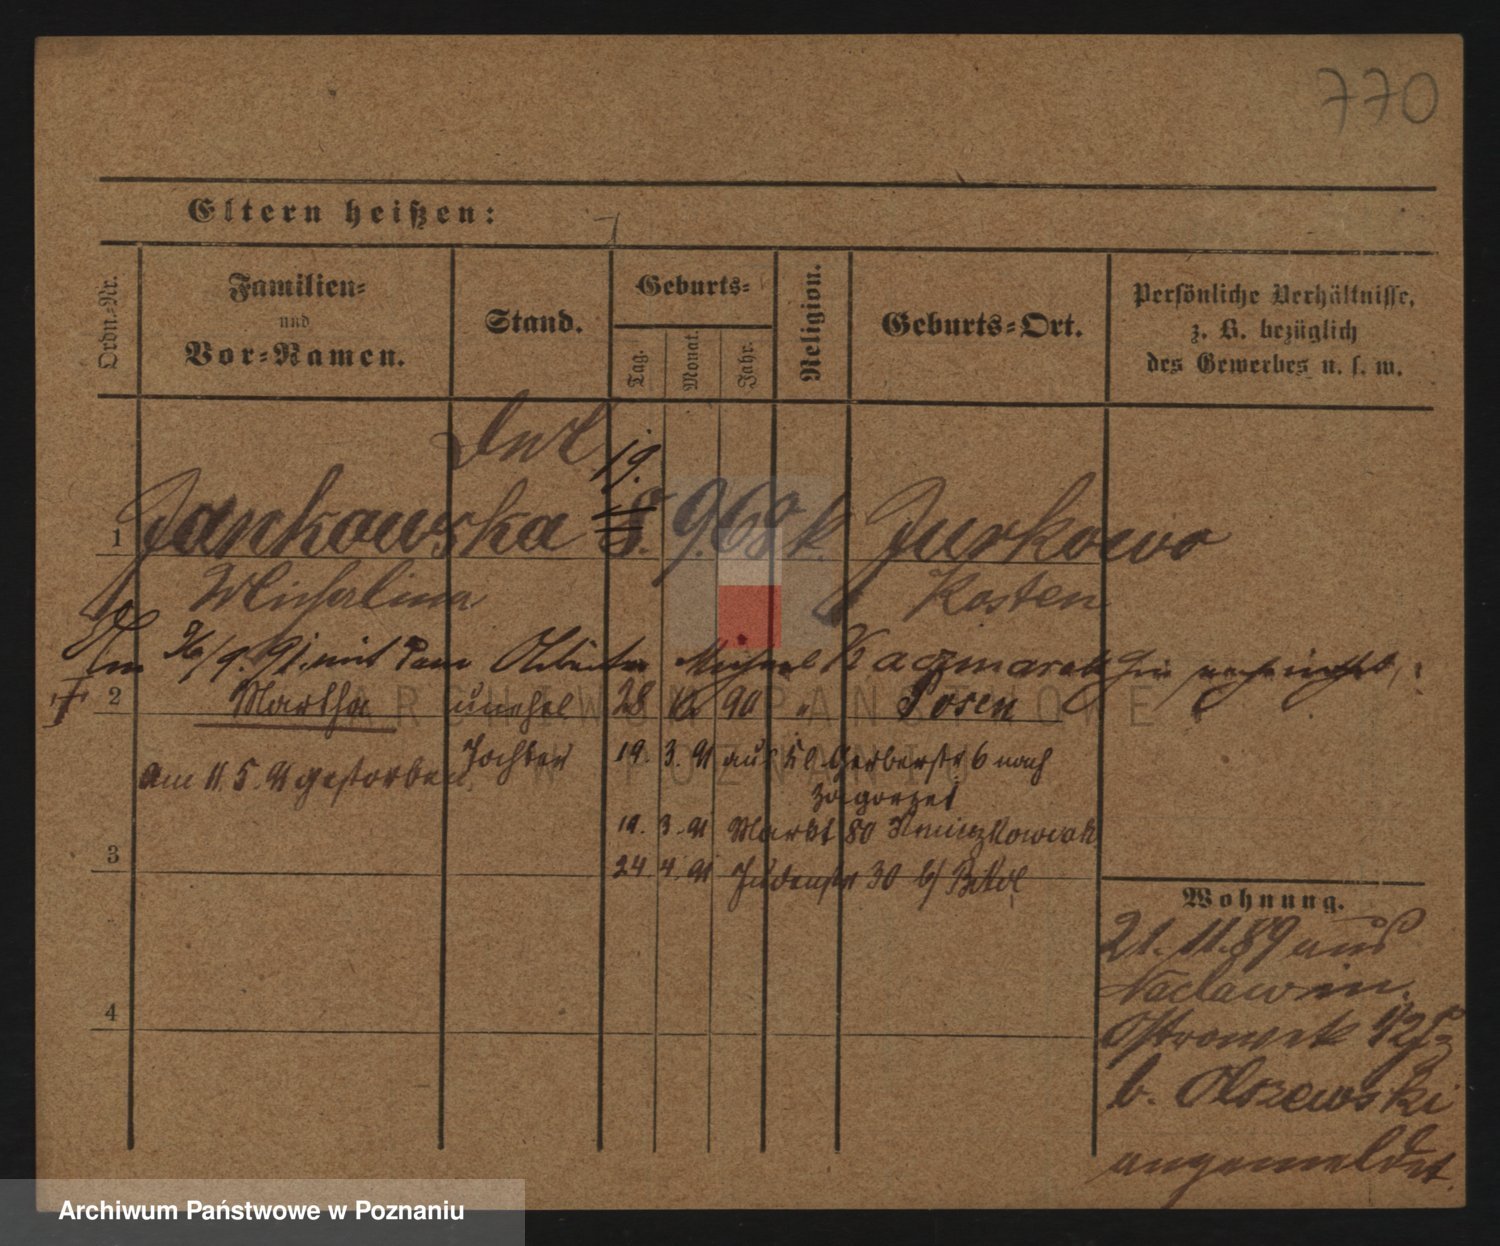 770
Eltern heißen:
Ordn.-Nr.
Familien-
und
Vor-Namen.
Stand.
Geburts-
Tag.
Monat.
Jahr.
Religion.
Geburts-Ort.
Persönliche Verhältnisse,
z. B. bezüglich
des Gewerbes u. s. w.
19.
1 Jankowska 8. 9. 68 k. Jurkowo
Michalina Kosten
26/9. 91. mit dem Arbeiter Michael Kaczmarek
2 Martha unehel 28 90 " Posen
Tochter
am 11. 5. 91 gestorben
19. 3. 91 aus Kl. Gerberstr 6 nach
Zagorze
19. 3. 91 Markt 80
3
24. 4. 91 Judenstr 30 b/
Wohnung.
21. 11. 89 aus
Naclaw in
Ostrowek
b. Olszewski
angemeldet.
4
ARCHIWUM PAŃSTWOWE
W POZNANIU
Archiwum Państwowe w Poznaniu